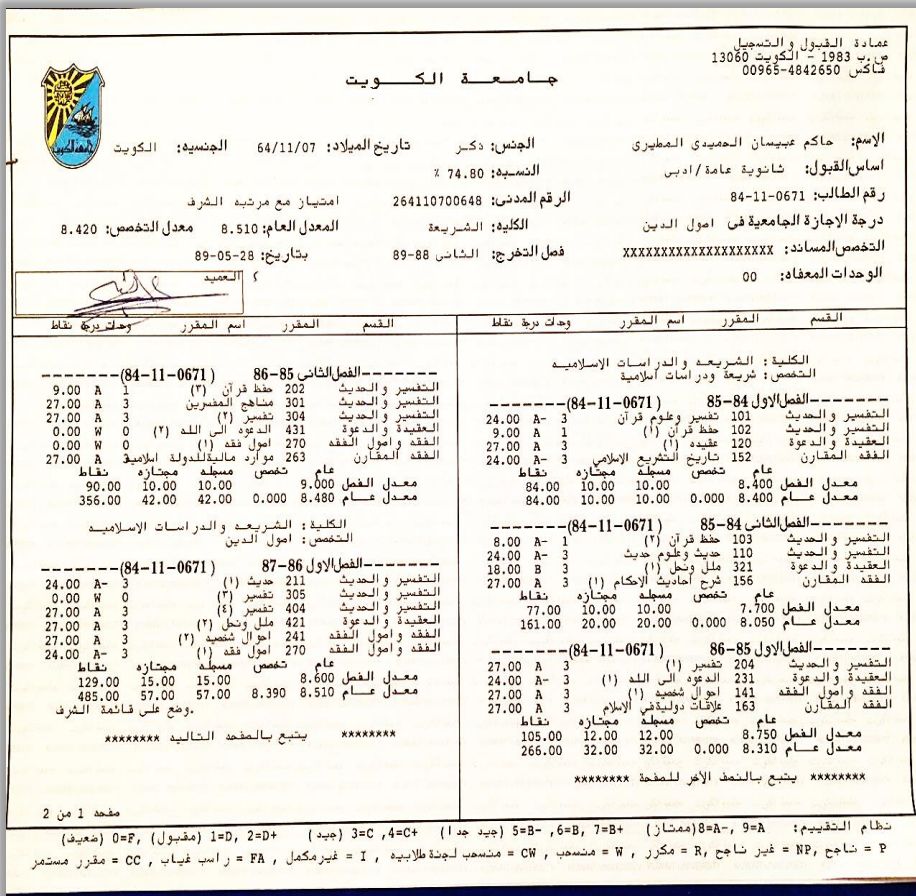 عمادة القبول والتسجيل
ص.ب 1983 - الكويت 13060
فاكس 00965-4842650
جامعة الكويت
الاسم: حاكم عبيسان الحميدى المطيرى الجنس: ذكر تاريخ الميلاد: 64/11/07 الجنسيه: الكويت
اساس القبول: ثانوية عامة/ادبى النسبه: 74.80 %
رقم الطالب: 84-11-0671 الرقم المدنى: 264110700648 امتياز مع مرتبه الشرف
درجة الاجازة الجامعية فى اصول الدين الكليه: الشريعة المعدل العام: 8.510 معدل التخصص: 8.420
التخصص المساند: XXXXXXXXXXXXXXXXXXXX فصل التخرج: الثانى 88-89 بتاريخ: 28-05-89
الوحدات المعفاه: 00
العميد
القسم المقرر اسم المقرر وحدات درجة نقاط
الكلية: الشريعه والدراسات الاسلاميه
التخصص: شريعة ودراسات اسلامية
-------الفصل الاول 84-85 (84-11-0671)-------
التفسير والحديث 101 تفسير وعلوم قرآن 3 A- 24.00
التفسير والحديث 102 حفظ قرآن (١) 1 A 9.00
العقيدة والدعوة 120 عقيده (١) 3 A 27.00
الفقه المقارن 152 تاريخ التشريع الاسلامي 3 A- 24.00
عام تخصص مسجله مجتازه نقاط
معدل الفصل 8.400 10.00 10.00 84.00
معدل عام 8.400 0.000 10.00 10.00 84.00
-------الفصل الثانى 84-85 (84-11-0671)-------
التفسير والحديث 103 حفظ قرآن (٢) 1 A- 8.00
التفسير والحديث 110 حديث وعلوم حديث 3 A- 24.00
العقيدة والدعوة 321 ملل ونحل (١) 3 B 18.00
الفقه المقارن 156 شرح احاديث الاحكام (١) 3 A 27.00
عام تخصص مسجله مجتازه نقاط
معدل الفصل 7.700 10.00 10.00 77.00
معدل عام 8.050 0.000 20.00 20.00 161.00
-------الفصل الاول 85-86 (84-11-0671)-------
التفسير والحديث 204 تفسير (١) 3 A 27.00
العقيدة والدعوة 231 الدعوه الى الله (١) 3 A- 24.00
الفقه واصول الفقه 141 احوال شخصيه (١) 3 A 27.00
الفقه المقارن 163 علاقات دولية في الاسلام 3 A 27.00
عام تخصص مسجله مجتازه نقاط
معدل الفصل 8.750 12.00 12.00 105.00
معدل عام 8.310 0.000 32.00 32.00 266.00
******** يتبع بالنصف الاخر للصفحة ********
القسم المقرر اسم المقرر وحدات درجة نقاط
-------الفصل الثانى 85-86 (84-11-0671)-------
التفسير والحديث 202 حفظ قرآن (٣) 1 A 9.00
التفسير والحديث 301 مناهج المفسرين 3 A 27.00
التفسير والحديث 304 تفسير (٢) 3 A 27.00
العقيدة والدعوة 431 الدعوه الى الله (٢) 0 W 0.00
الفقه واصول الفقه 270 اصول فقه (١) 0 W 0.00
الفقه المقارن 263 موارد مالية للدولة اسلاميه 3 A 27.00
عام تخصص مسجله مجتازه نقاط
معدل الفصل 9.000 10.00 10.00 90.00
معدل عام 8.480 0.000 42.00 42.00 356.00
الكلية: الشريعه والدراسات الاسلاميه
التخصص: اصول الدين
-------الفصل الاول 86-87 (84-11-0671)-------
التفسير والحديث 211 حديث (١) 3 A- 24.00
التفسير والحديث 305 تفسير (٣) 0 W 0.00
التفسير والحديث 404 تفسير (٤) 3 A 27.00
العقيدة والدعوة 421 ملل ونحل (٢) 3 A 27.00
الفقه واصول الفقه 241 احوال شخصيه (٢) 3 A 27.00
الفقه واصول الفقه 270 اصول فقه (١) 3 A- 24.00
عام تخصص مسجله مجتازه نقاط
معدل الفصل 8.600 15.00 15.00 129.00
معدل عام 8.510 8.390 57.00 57.00 485.00
وضع على قائمة الشرف.
******** يتبع بالصفحه التاليه ********
صفحه 1 من 2
نظام التقييم: 9=A ,8=A- (ممتاز) 7=B+ ,6=B ,5=B- (جيد جدا) 4=C+ ,3=C (جيد) 2=D+ ,1=D (مقبول) ,0=F (ضعيف)
P = ناجح ,NP = غير ناجح ,R = مكرر , W = منسحب , CW = منسحب لجنة طلابيه , I = غير مكمل , FA = راسب غياب , CC = مقرر مستمر